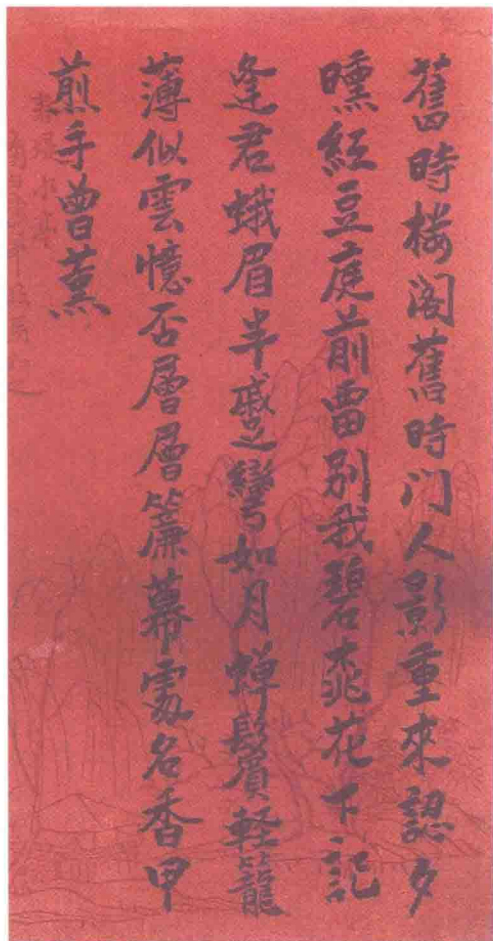 舊時楼阁舊時门人影重來認夕
曛紅豆庭前畱别我碧桃花下記
逢君蛾眉半蹙彎如月蟬鬢軽籠
薄似雲憶否層層簾幕處名香甲
煎手曾薰